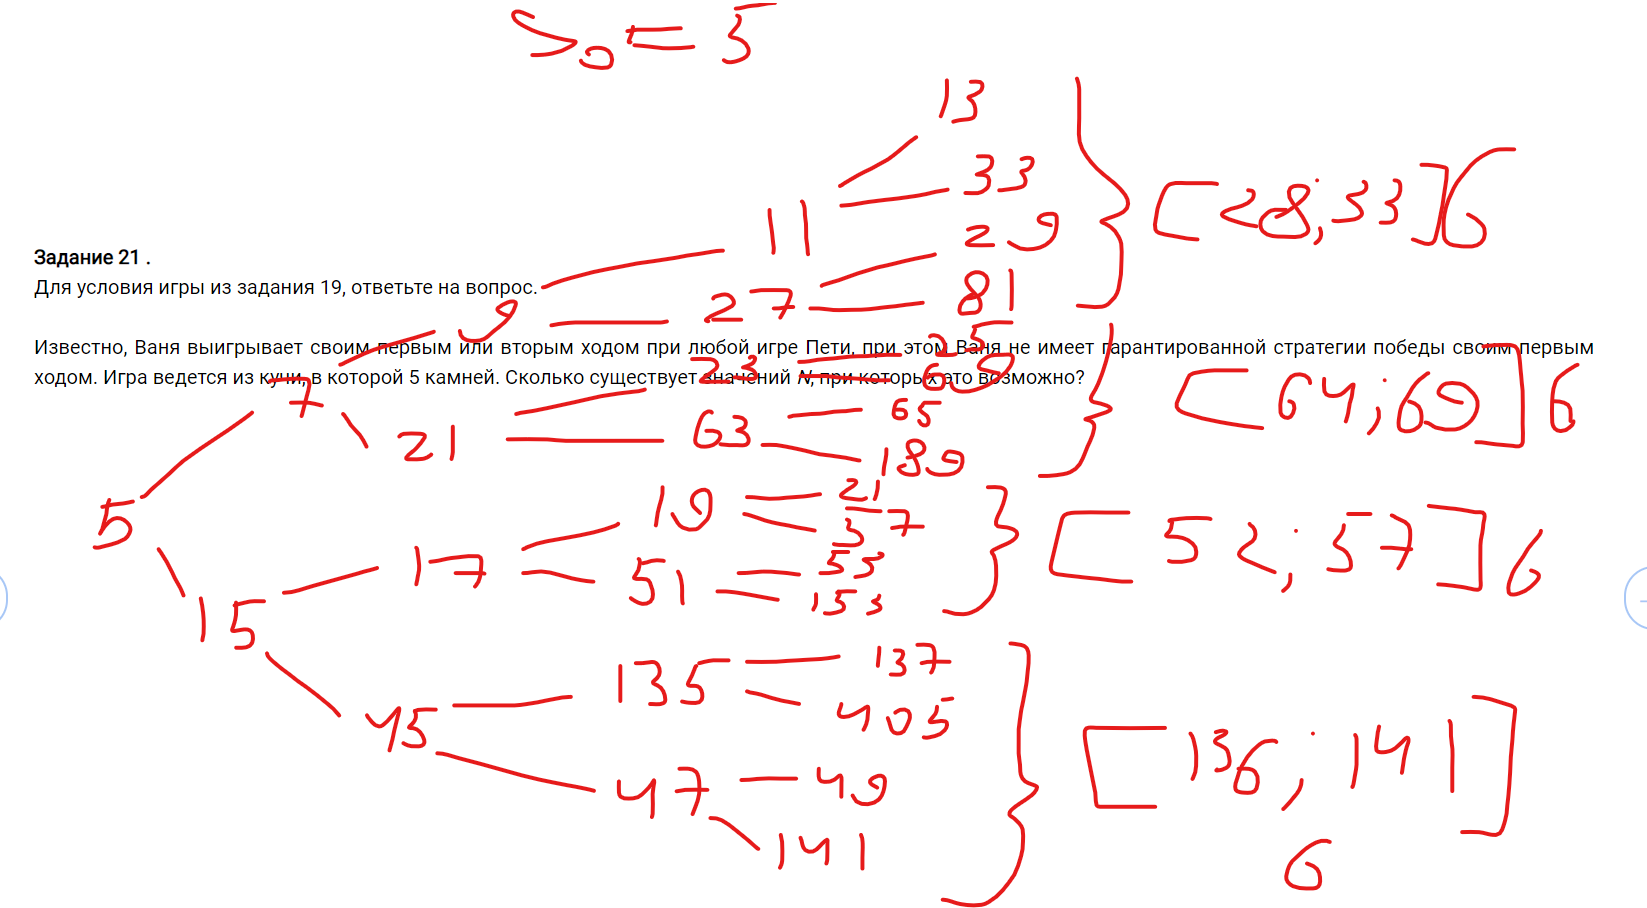 S₀ = 5
13
33
[28; 33] 6
11
29
Задание 21 .
Для условия игры из задания 19, ответьте на вопрос.
27
81
9
Известно, Ваня выигрывает своим первым или вторым ходом при любой игре Пети, при этом Ваня не имеет гарантированной стратегии победы своим первым
25
ходом. Игра ведется из кучи, в которой 5 камней. Сколько существует значений N, при которых это возможно?
23
69
7
[64; 69] 6
65
21
63
189
21
19
37
5
[52; 57] 6
17
55
51
153
15
137
135
405
45
[136; 141]
47
49
141
6